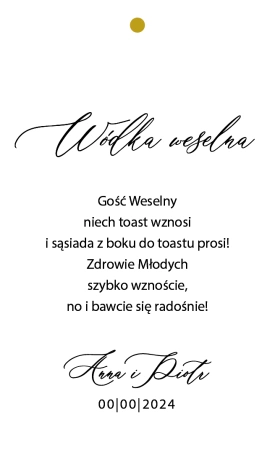 Wódka weselna
Gość Weselny
niech toast wznosi
i sąsiada z boku do toastu prosi!
Zdrowie Młodych
szybko wznoście,
no i bawcie się radośnie!
Anna i Piotr
00|00|2024